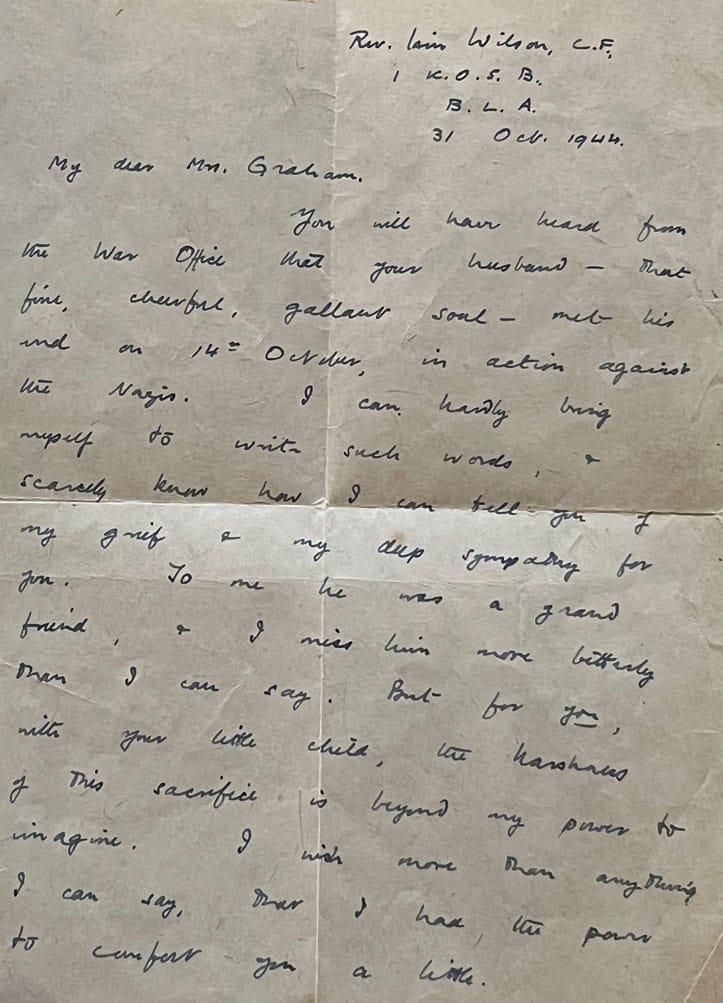 Rev. Iain Wilson, C.F.,
1 K.O.S.B.,
B.L.A.
31 Oct. 1944.
My dear Mrs. Graham.
You will have heard from
the War Office that your husband – that
fine, cheerful, gallant soul – met his
end on 14th October, in action against
the Nazis. I can hardly bring
myself to write such words, &
scarcely know how I can tell you of
my grief & my deep sympathy for
you. To me he was a grand
friend, & I miss him more bitterly
than I can say. But for you,
with your little child, the harshness
of this sacrifice is beyond my power to
imagine. I wish more than anything
I can say, that I had the power
to comfort you a little.